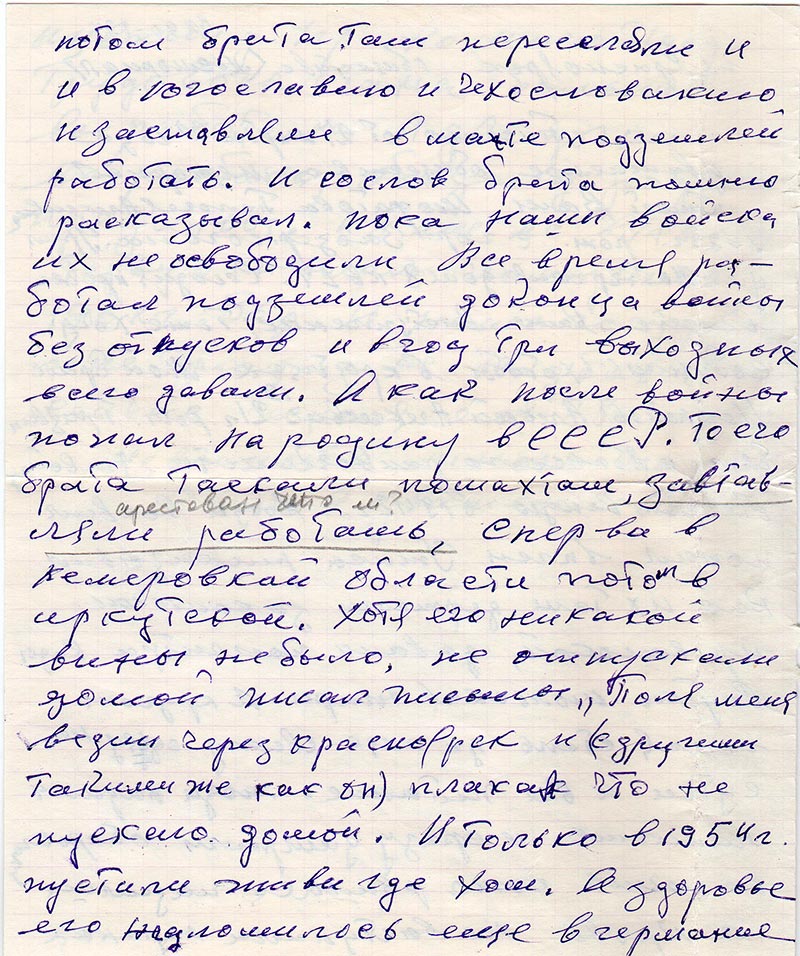 потом брата там переселяли и
и в югославию и Чехословакию
и заставляли в махте подземлей
работать. И сослов брата помню
расказывал. пока наши войска
их не освободили Все время ра-
ботал подземлей доконца войны
без отпусков и вгод три выходных
всего давали. А как после войны
попал на родину вСССР. То его
брата Таскали пошахтам, завтав-
арестован что ли?
ляли работать, сперва в
кемеровкай области потом в
иркутской. Хотя его никакой
вины небыло, не отпускали
домой, писал письмы „Поля меня
везли через краснорек и (с другими
Такими же как он) плакал что не
пускают домой. И Только в 1954 г.
пустили живи где хош. А здоровье
его надломилось еще в германие